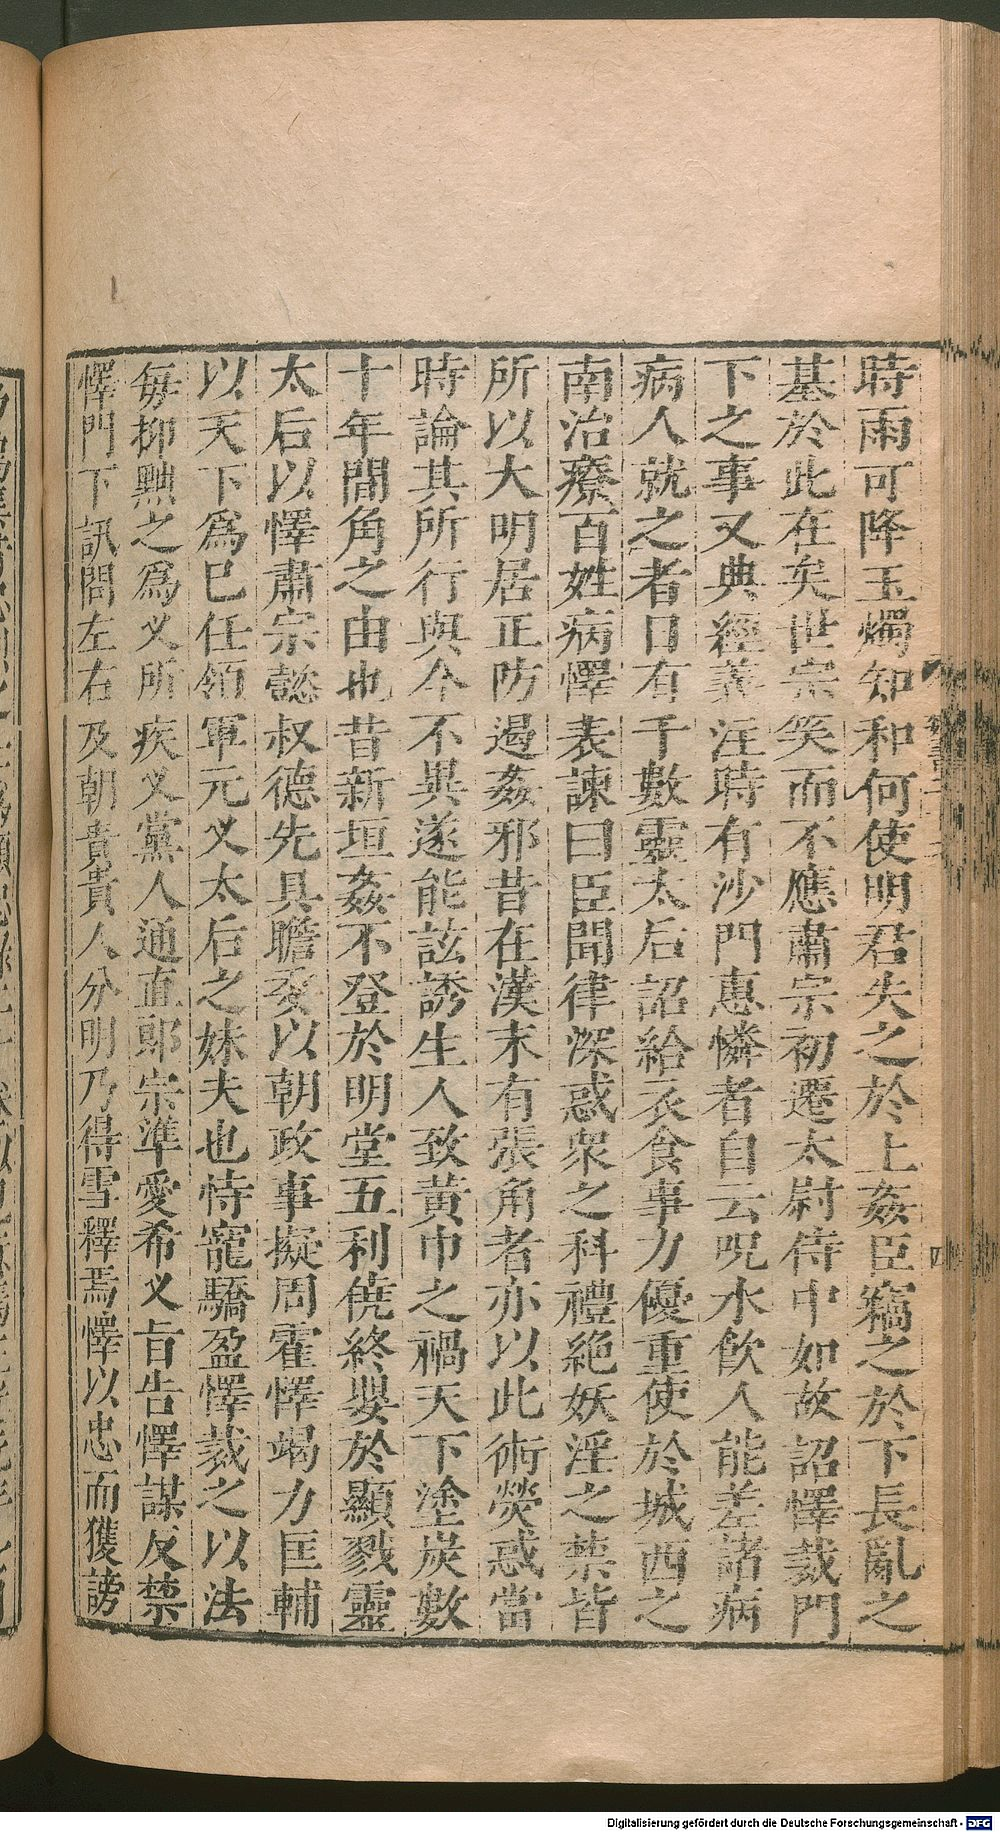 時雨可降玉燭知和何使明君失之於上姦臣竊之於下長亂之
基於此在矣世宗笑而不應肅宗初遷太尉侍中如故詔懌裁門
下之事又典經義注時有沙門惠憐者自云呪水飲人能差諸病
病人就之者日有千數靈太后詔給衣食事力優重使於城西之
南治療百姓病懌表諫曰臣聞律深惑衆之科禮絕妖淫之禁皆
所以大明居正防遏姦邪昔在漢末有張角者亦以此術熒惑當
時論其所行與今不異遂能詃誘生人致黃巾之禍天下塗炭數
十年間角之由也昔新垣姦不登於明堂五利僥終嬰於顯戮靈
太后以懌肅宗懿叔德先具瞻委以朝政事擬周霍懌竭力匡輔
以天下爲已任領軍元乂太后之妹夫也恃寵驕盈懌裁之以法
每抑黜之爲乂所疾乂黨人通直郎宗準愛希乂旨告懌謀反禁
懌門下訊問左右及朝貴貴人分明乃得雪釋焉懌以忠而獲謗
四
Digitalisierung gefördert durch die Deutsche Forschungsgemeinschaft - DFG